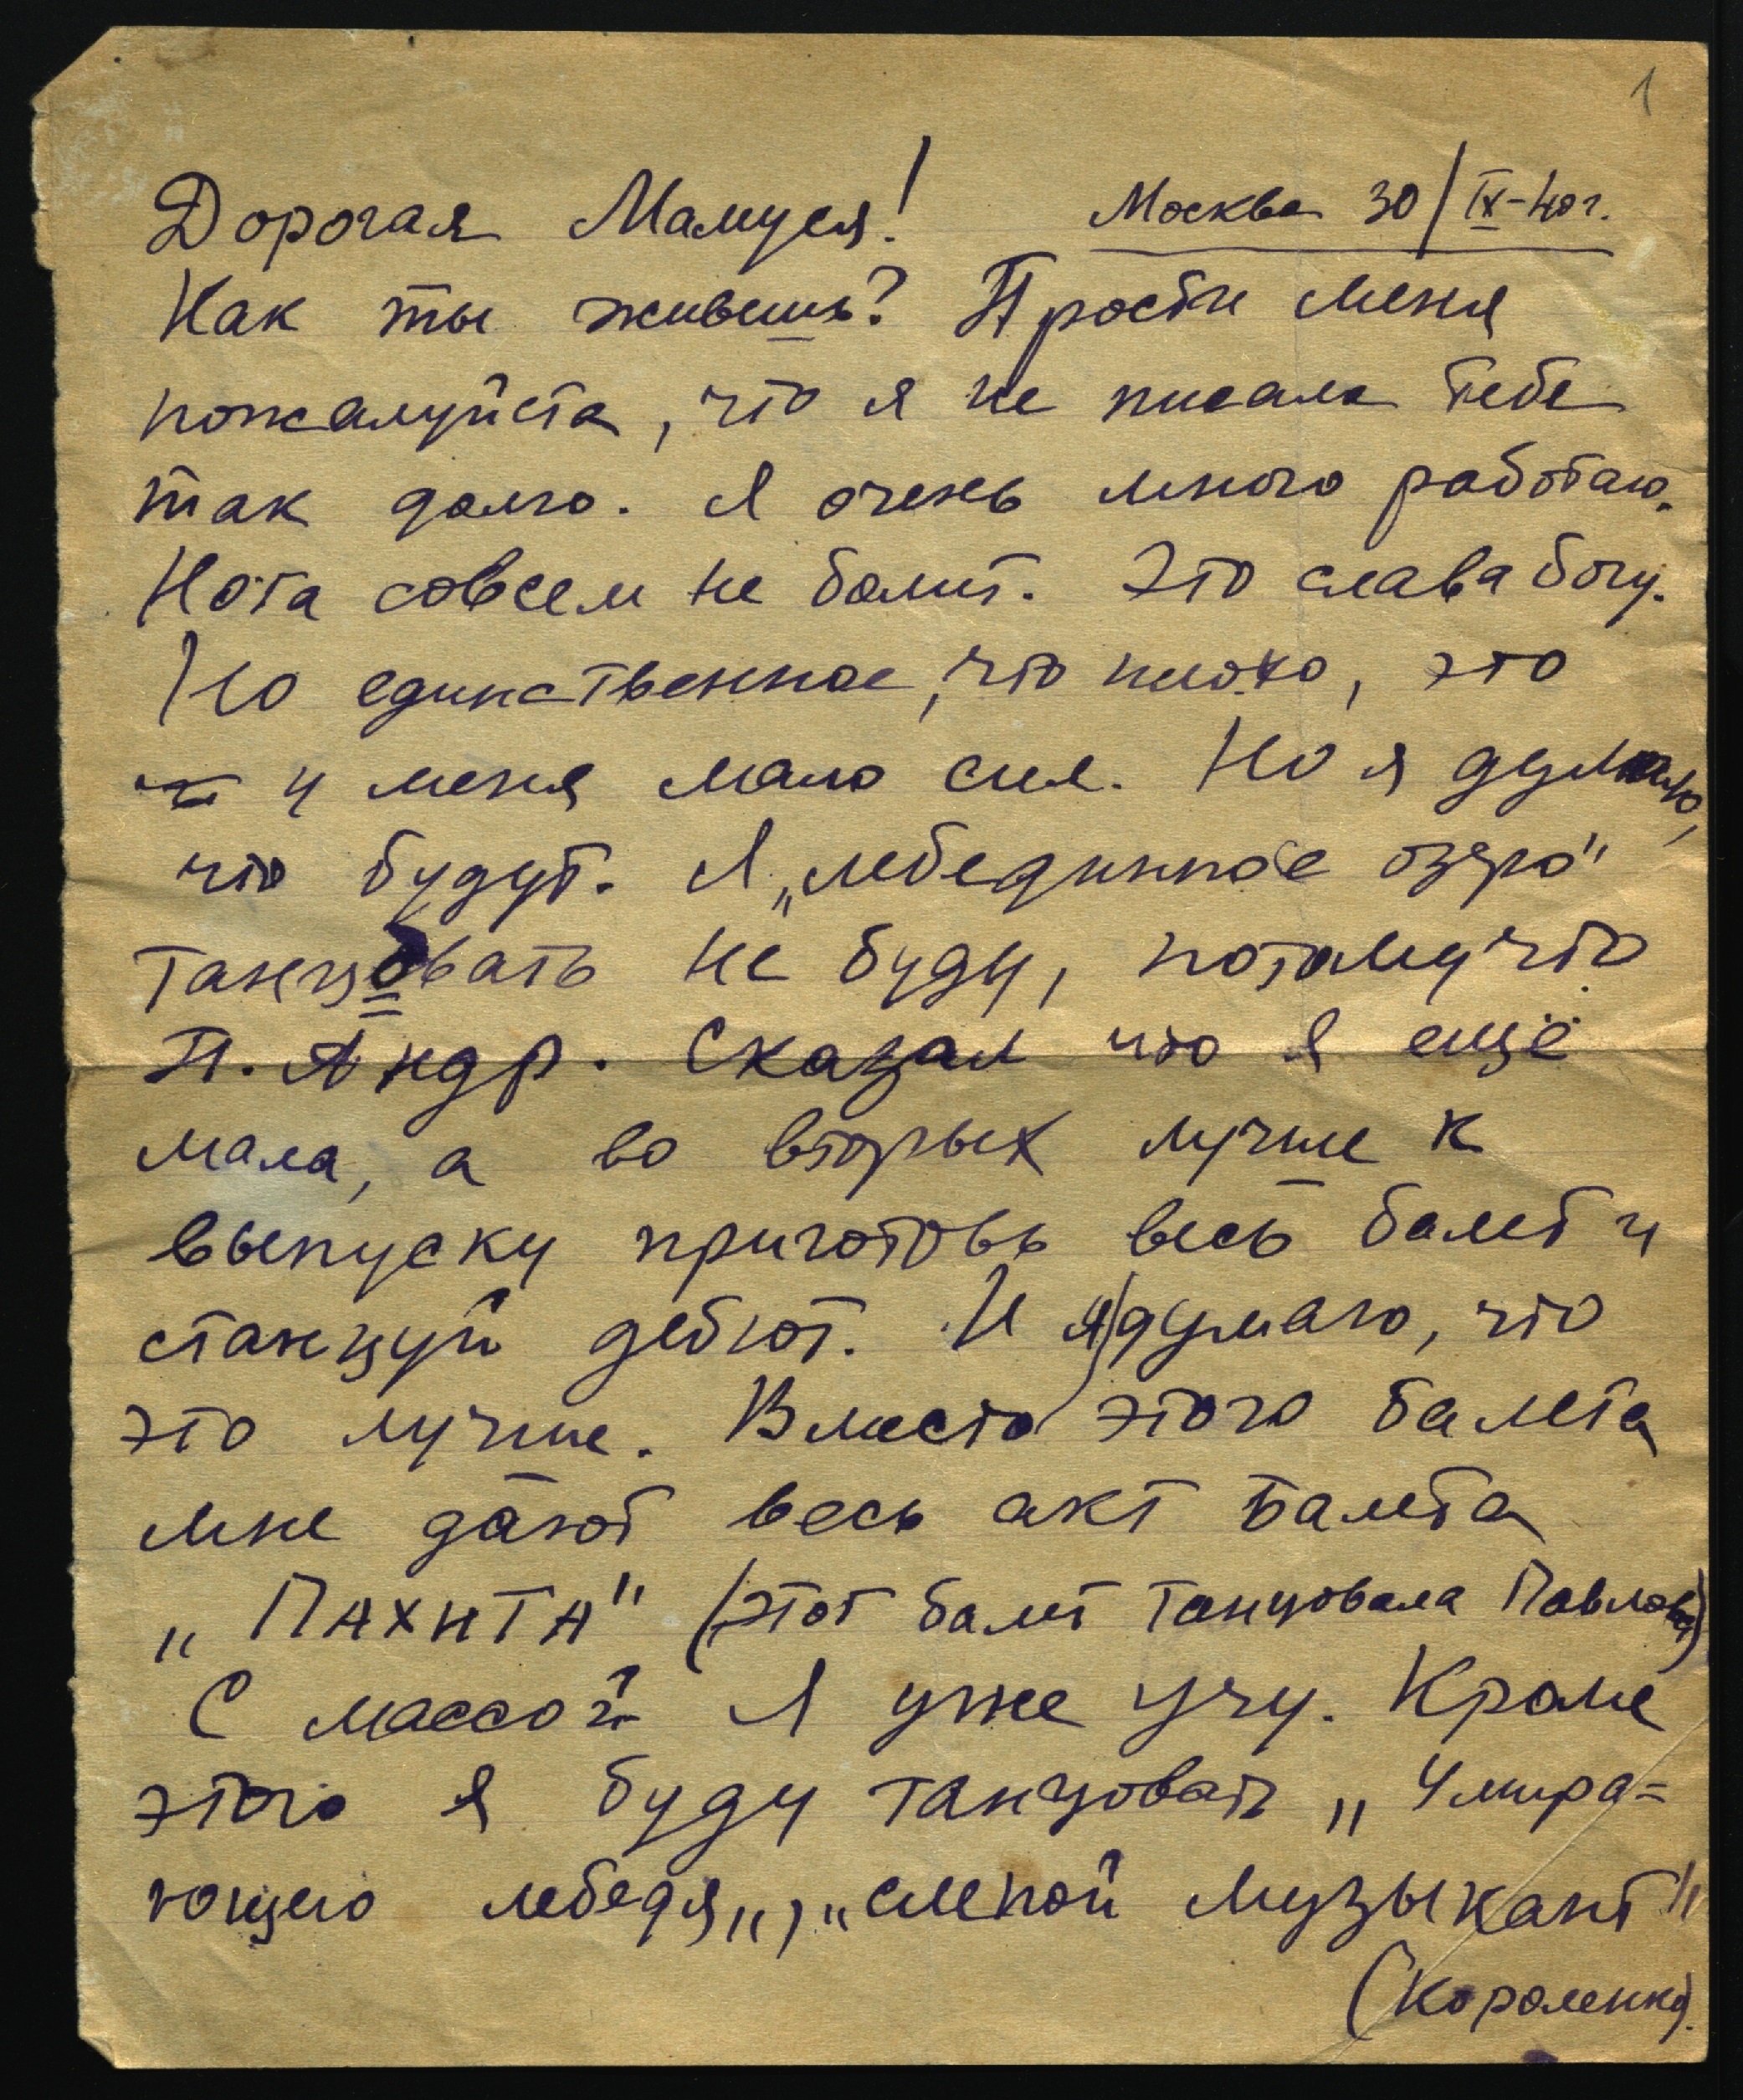 1
Дорогая Мамуся! Москва 30/IX-40г.
Как ты живешь? Прости меня
пожалуйста, что я не писала тебе
так долго. Я очень много работаю.
Нога совсем не болит. Это слава богу.
Но единственное, что плохо, это
у меня мало сил. Но я думаю,
что будут. Я „лебединное озеро"
танцовать не буду, потому что
П. Андр. Сказал что я ещё
мала, а во вторых лучше к
выпуску приготовь весь балет и
станцуй дебют. И я думаю, что
это лучше. Вместо этого балета
мне дают весь акт балета
„ПАХИТА" (этот балет танцовала Павлова)
С массой Я уже учу. Кроме
этого я буду танцовать „Умира=
ющего лебедя„, „слепой музыкант"
(Короленко).